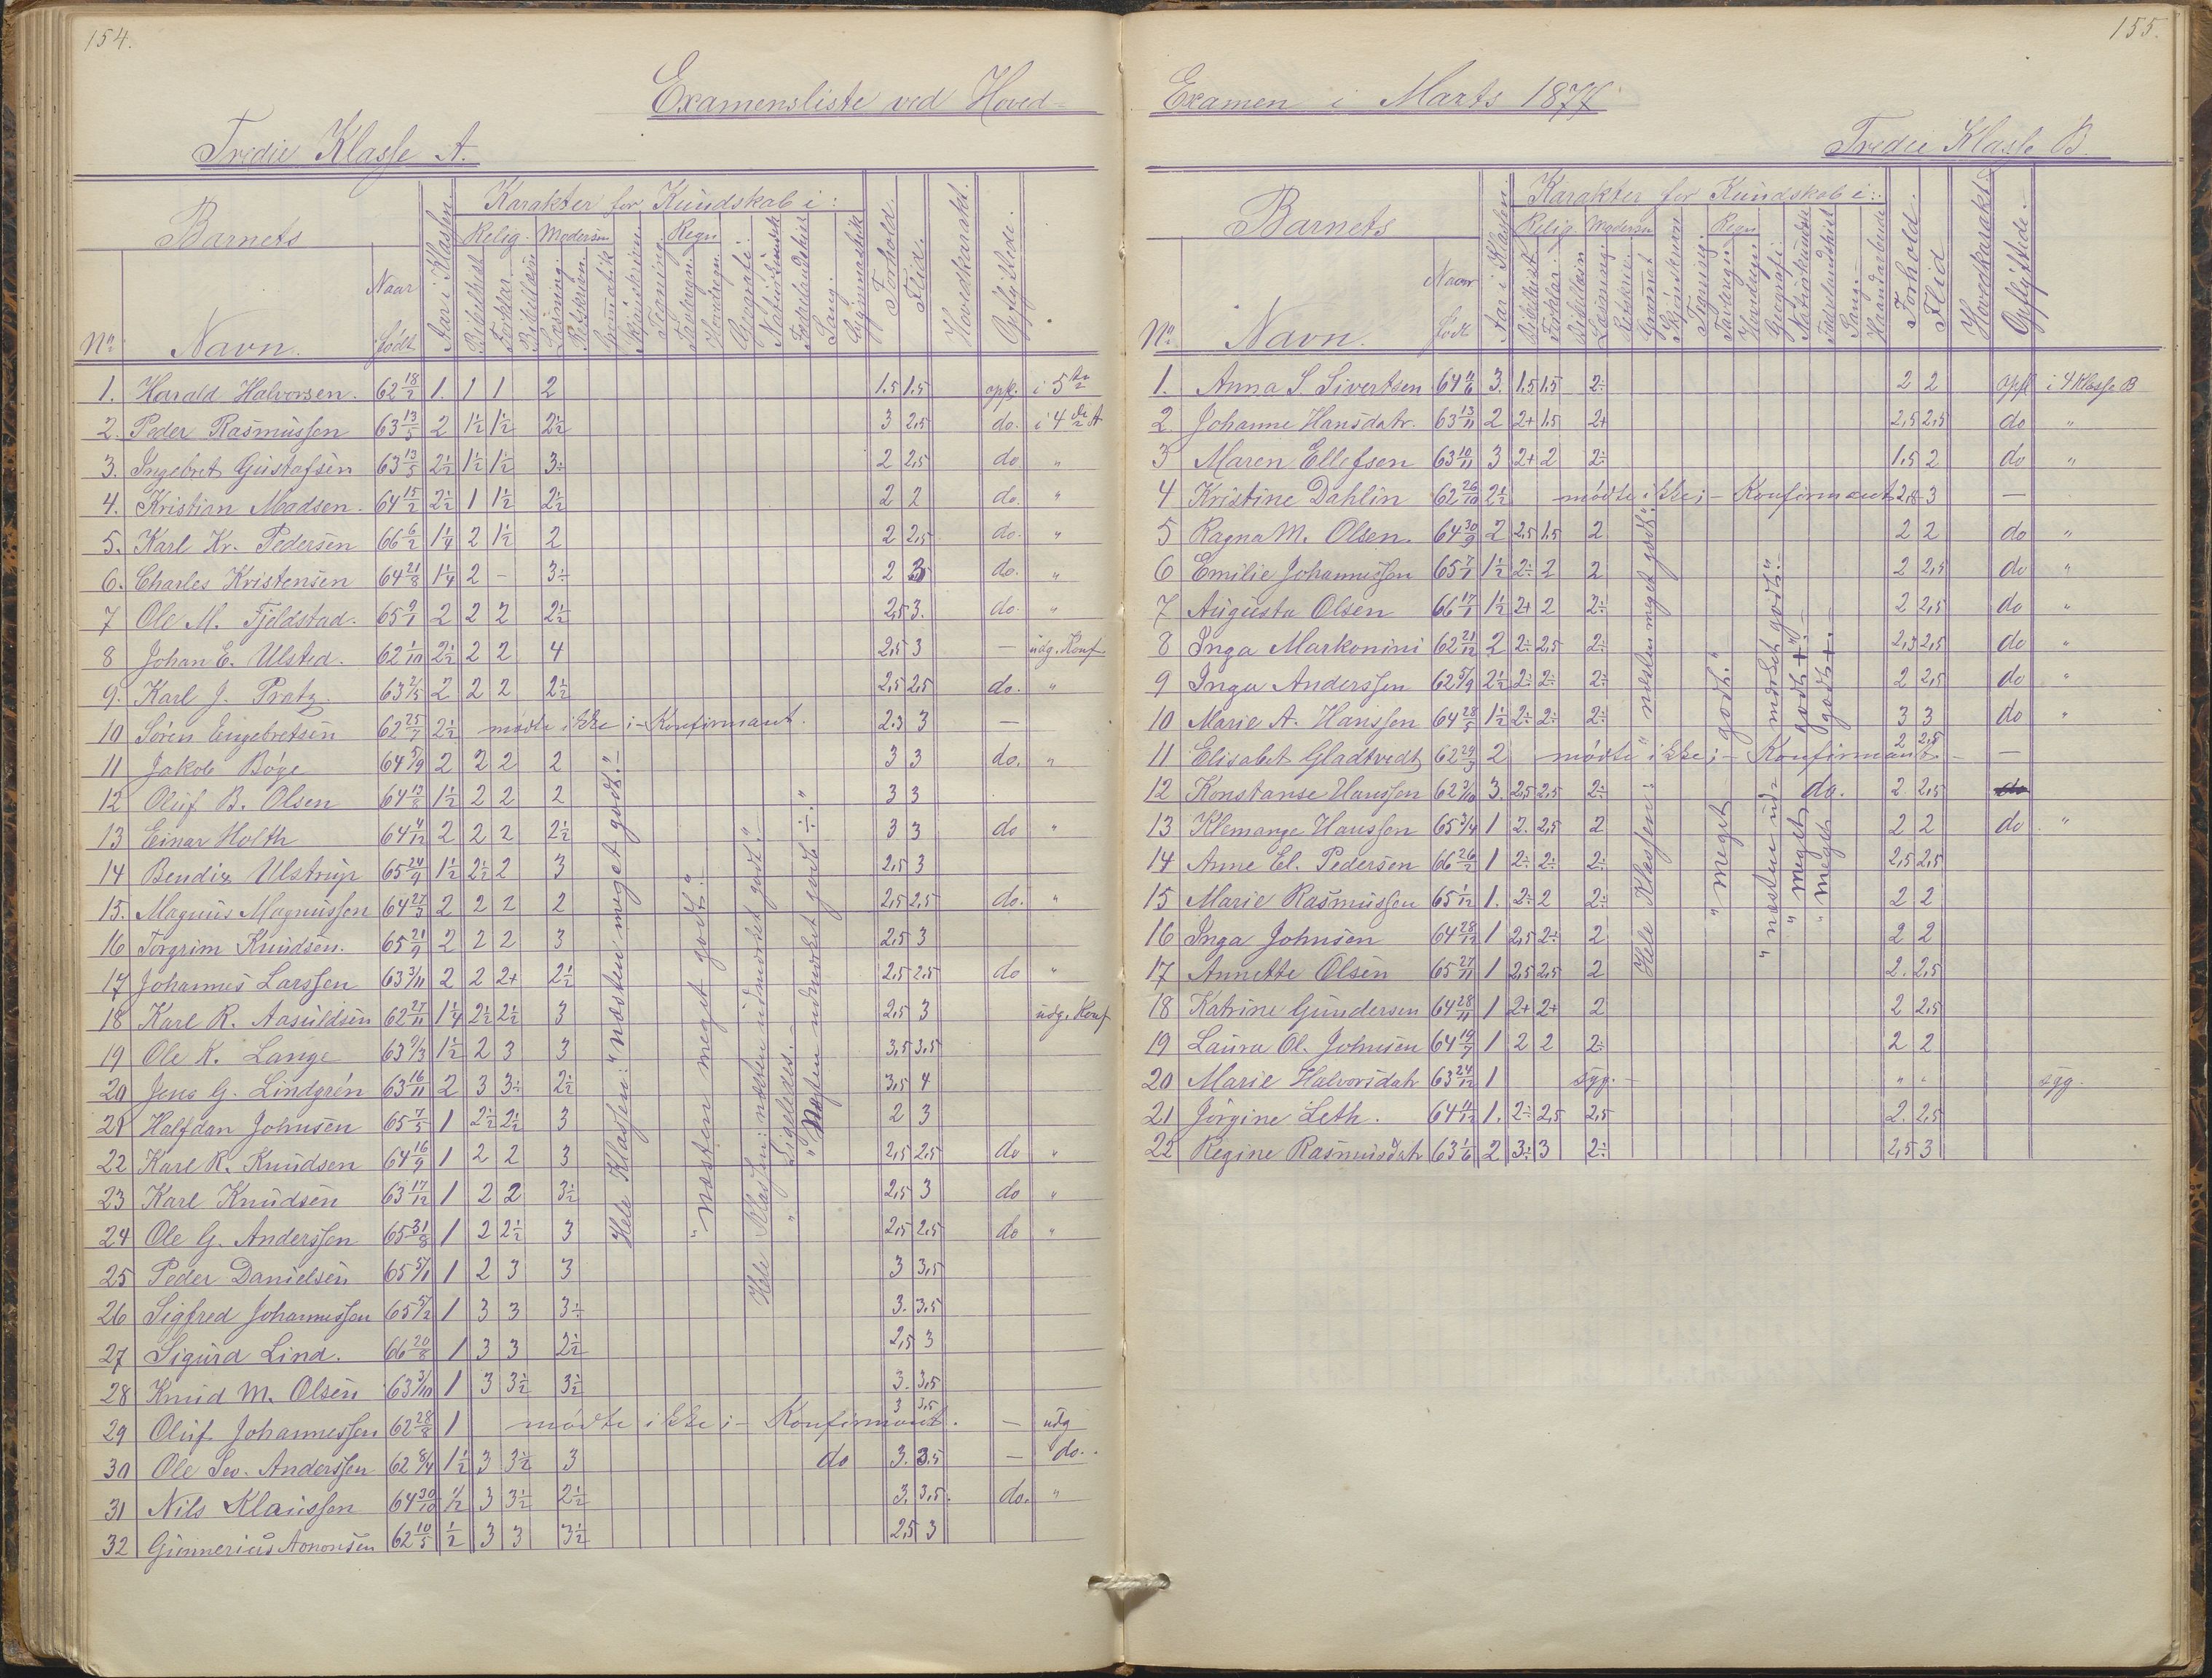 154.
Examensliste ved Hoved-
Tredie Klasse A.
Barnets
Karakter for Kundskab i:
Relig. Modersm Regn
No. Navn. Naar født Aar i Klassen. Bibelhist. Forklar. Bibellæsn Læsning. Retskrivn. Gramatik Skjönskrivn. Tegning. Tavleregn. Hovedregn. Geografi. Naturkundsk Fædrelandshist Sang. Gymnastik Forhold. Flid. Hovedkarakt. Opflyttede.
1. Harald Halvorsen. 62 18/2 1. 1 1 2 1.5 1.5 opfl. i 5te
2. Peder Rasmussen 63 13/5 2 1½ 1½ 2½ 3 2,5 do. i 4de A
3. Ingebret Gustafsen 63 13/5 2½ 1½ 1½ 3÷ 2 2,5 do "
4. Kristian Madsen. 64 15/2 2½ 1 1½ 2½ 2 2 do. "
5. Karl Kr. Pedersen 66 6/2 1¼ 2 1½ 2 2 2,5 do. "
6. Charles Kristensen 64 21/8 1¼ 2 - 3÷ 2 3 do. "
7 Ole M. Fjeldstad. 65 9/1 2 2 2 2½ 2,5 3. do. "
8 Johan E. Ulsted. 62 1/10 2½ 2 2 4 2,5 3 — udg. Konf.
9. Karl J. Pratz 63 2/5 2 2 2 2½ 2,5 2,5 do. "
10 Sören Engebretsen 62 25/7 2½ mødte ikke i - Konfirmant. 2.3 3 —
11 Jakob Böge 64 5/9 2 2 2 2 3 3 do. "
12 Oluf B. Olsen 64 13/8 1½ 2 2 2 3 3
13 Einar Holth 64 4/12 2 2 2 2½ 3 3 do "
14 Bendix Ulstrup 65 24/9 1½ 2½ 2 3 2,5 3
15. Magnus Magnussen 64 27/3 2 2 2 2 2,5 2,5 do. "
16 Torgrim Knudsen. 65 21/9 2 2 2 3 2,5 3
17 Johannes Larssen 63 3/11 2 2 2+ 2½ 2,5 2,5 do "
18 Karl R. Aasuldsen 62 27/11 1¼ 2½ 2½ 3 2,5 3 udg. Konf
19 Ole K. Lange 63 9/3 1½ 2 3 3 3,5 3,5
20 Jens G. Lindgrén 63 16/11 2 3 3÷ 2½ 3,5 4
21 Halfdan Johnsen 65 7/5 1 2½ 2½ 3 2 3
22 Karl R. Knudsen 64 16/9 1 2 2 3 2,5 2,5 do "
23 Karl Knudsen 63 17/12 1 2 2 3½ 2,5 3 do "
24 Ole G. Anderssen 65 31/8 1 2 2½ 3 2,5 2,5 do "
25 Peder Danielsen 65 5/1 1 2 3 3 3 3,5
26 Sigfred Johannessen 65 5/2 1 3 3 3÷ 3. 3.5
27 Sigurd Lind. 66 20/8 1 3 3 2½ 2,5 3
28 Knud M. Olsen 63 3/10 1 3 3½ 3½ 3. 3,5
29 Oluf Johannessen 62 28/8 1 mødte ikke i - Konfirmant. 3 3,5 — udg
30 Ole Sev. Anderssen 62 8/4 1½ 3 3½ 3 do 3. 3.5 — do.
31 Nils Klaussen 64 30/10 ½ 3 3½ 2½ 3. 3,5. do. "
32 Gunnerius Aanonsen 62 10/5 ½ 3 3 3½ 2,5 3
Hele Klassen: "næsten meget godt."
" næsten meget godt."
Hele Klassen: næsten udmærket godt."
" Ligeledes.
" Næsten udmærket godt ÷."
155.
Examen i Marts 1877
Tredie Klasse B.
Barnets
Karakter for Kundskab i:
Relig. Modersm Regn
No. Navn. Naar født Aar i Klassen. Bibelhist. Forklar. Bibellæsn Læsning. Retskriv. Gramat Skjönskrivn Tegning. Tavleregn Hovedregn. Geografi. Naturkundsk Fædrelandshist Sang. Haandarbeide Forhold. Flid Hovedkarakt. Opflyttede.
1. Anna S. Sivertsen 64 4/6 3. 1.5 1.5 2÷ 2 2 opfl i 4 Klasse B
2. Johanne Hansdatr. 63 13/11 2 2+ 1.5 2+ 2,5 2,5 do "
3 Maren Ellefsen 63 10/11 3 2+ 2 2÷ 1.5 2 do "
4 Kristine Dahlin 62 26/10 2½ mødte ikke i - Konfirmant 2,8 3 —
5 Ragna M. Olsen. 64 30/9 2 2,5 1.5 2 2 2 do "
6 Emilie Johannessen 65 7/1 1½ 2÷ 2 2 2 2,5 do "
7 Augusta Olsen 66 17/1 1½ 2+ 2 2÷ 2 2,5 do "
8 Inga Markonini 62 21/12 2 2÷ 2,5 2÷ 2,3 2,5 do "
9 Inga Anderssen 62 5/9 2½ 2÷ 2÷ 2÷ 2 2,5 do "
10 Marie A. Hanssen 64 28/5 1½ 2÷ 2÷ 2÷ 3 3 do "
11 Elisabet Gladtvedt 62 24/3 2 mødte ikke i - Konfirmant 2 2,5 —
12 Konstanse Hanssen 62 3/10 3. 2,5 2,5 2÷ do. 2. 2,5 do
13 Klemange Hanssen 65 3/4 1 2. 2,5 2 2 2 do. "
14 Anne El. Pedersen 66 26/2 1 2÷ 2÷ 2÷ 2,5 2,5
15 Marie Rasmussen 65 1/12 1. 2÷ 2 2÷ 2 2
16 Inga Johnsen 64 28/12 1 2,5 2÷ 2 2 2
17 Annette Olsen 65 27/11 1 2,5 2,5 2 2. 2,5
18 Katrine Gundersen 64 28/11 1 2+ 2+ 2 2 2,5
19 Laura Ol. Johnsen 64 19/7 1 2 2 2÷ 2 2
20 Marie Halvorsdatr 63 24/12 1 syg. - " " syg.
21 Jörgine Leth. 64 4/12 1. 2÷ 2,5 2,5 2. 2,5
22 Regine Rasmusdatr 63 1/6 2 3÷ 3 2÷ 2,5 3
Hele Klassen: "næsten meget godt."
" meget godt."
" næsten udmærket godt."
" meget godt +"
" meget godt +.